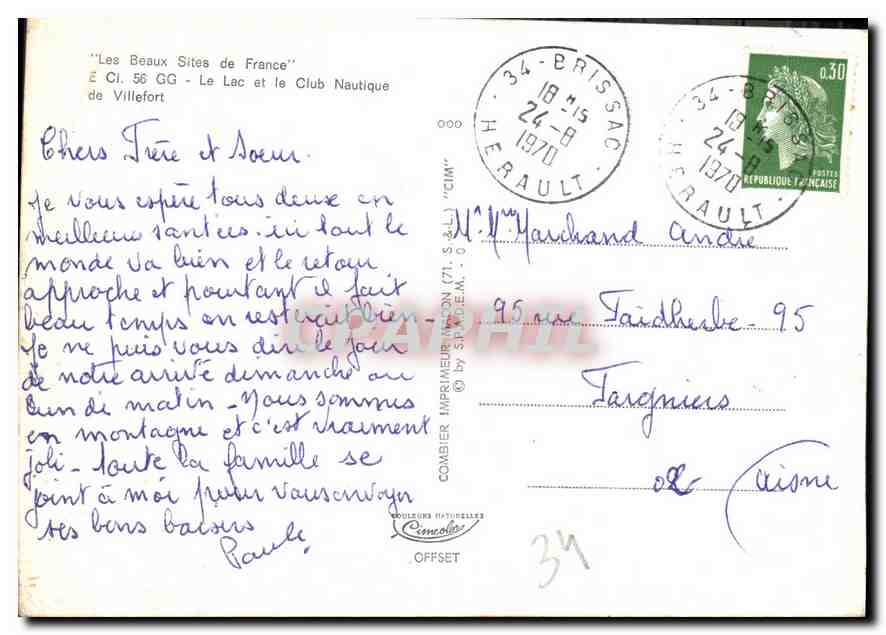 "Les Beaux Sites de France"
E Cl. 56 GG - Le Lac et le Club Nautique
de Villefort
Chers Frère et Soeur.
Je vous espère tous deux en
meilleure santées. ici tout le
monde va bien et le retour
approche et pourtant il fait
beau temps on resterait bien-
Je ne puis vous dire le jour
de notre arrivé dimanche ou
lundi matin - Nous sommes
en montagne et c'est vraiment
joli - toute la famille se
joint à moi pour vous envoyer
ses bons baisers
Paule.
COMBIER IMPRIMEUR MACON (71. S.&L.) "CIM"
© by S.P.A.D.E.M.
COULEURS NATURELLES
Cimcolor
OFFSET
34 - BRISSAC
18 H 15
24-8
1970
HERAULT
34 - BRISSAC
18 H 15
24-8
1970
HERAULT
0,30
POSTES
REPUBLIQUE FRANÇAISE
Mr Mme Marchand André
95 rue Faidherbe - 95
Fargniers
02 Aisne
34
CPAPHIL